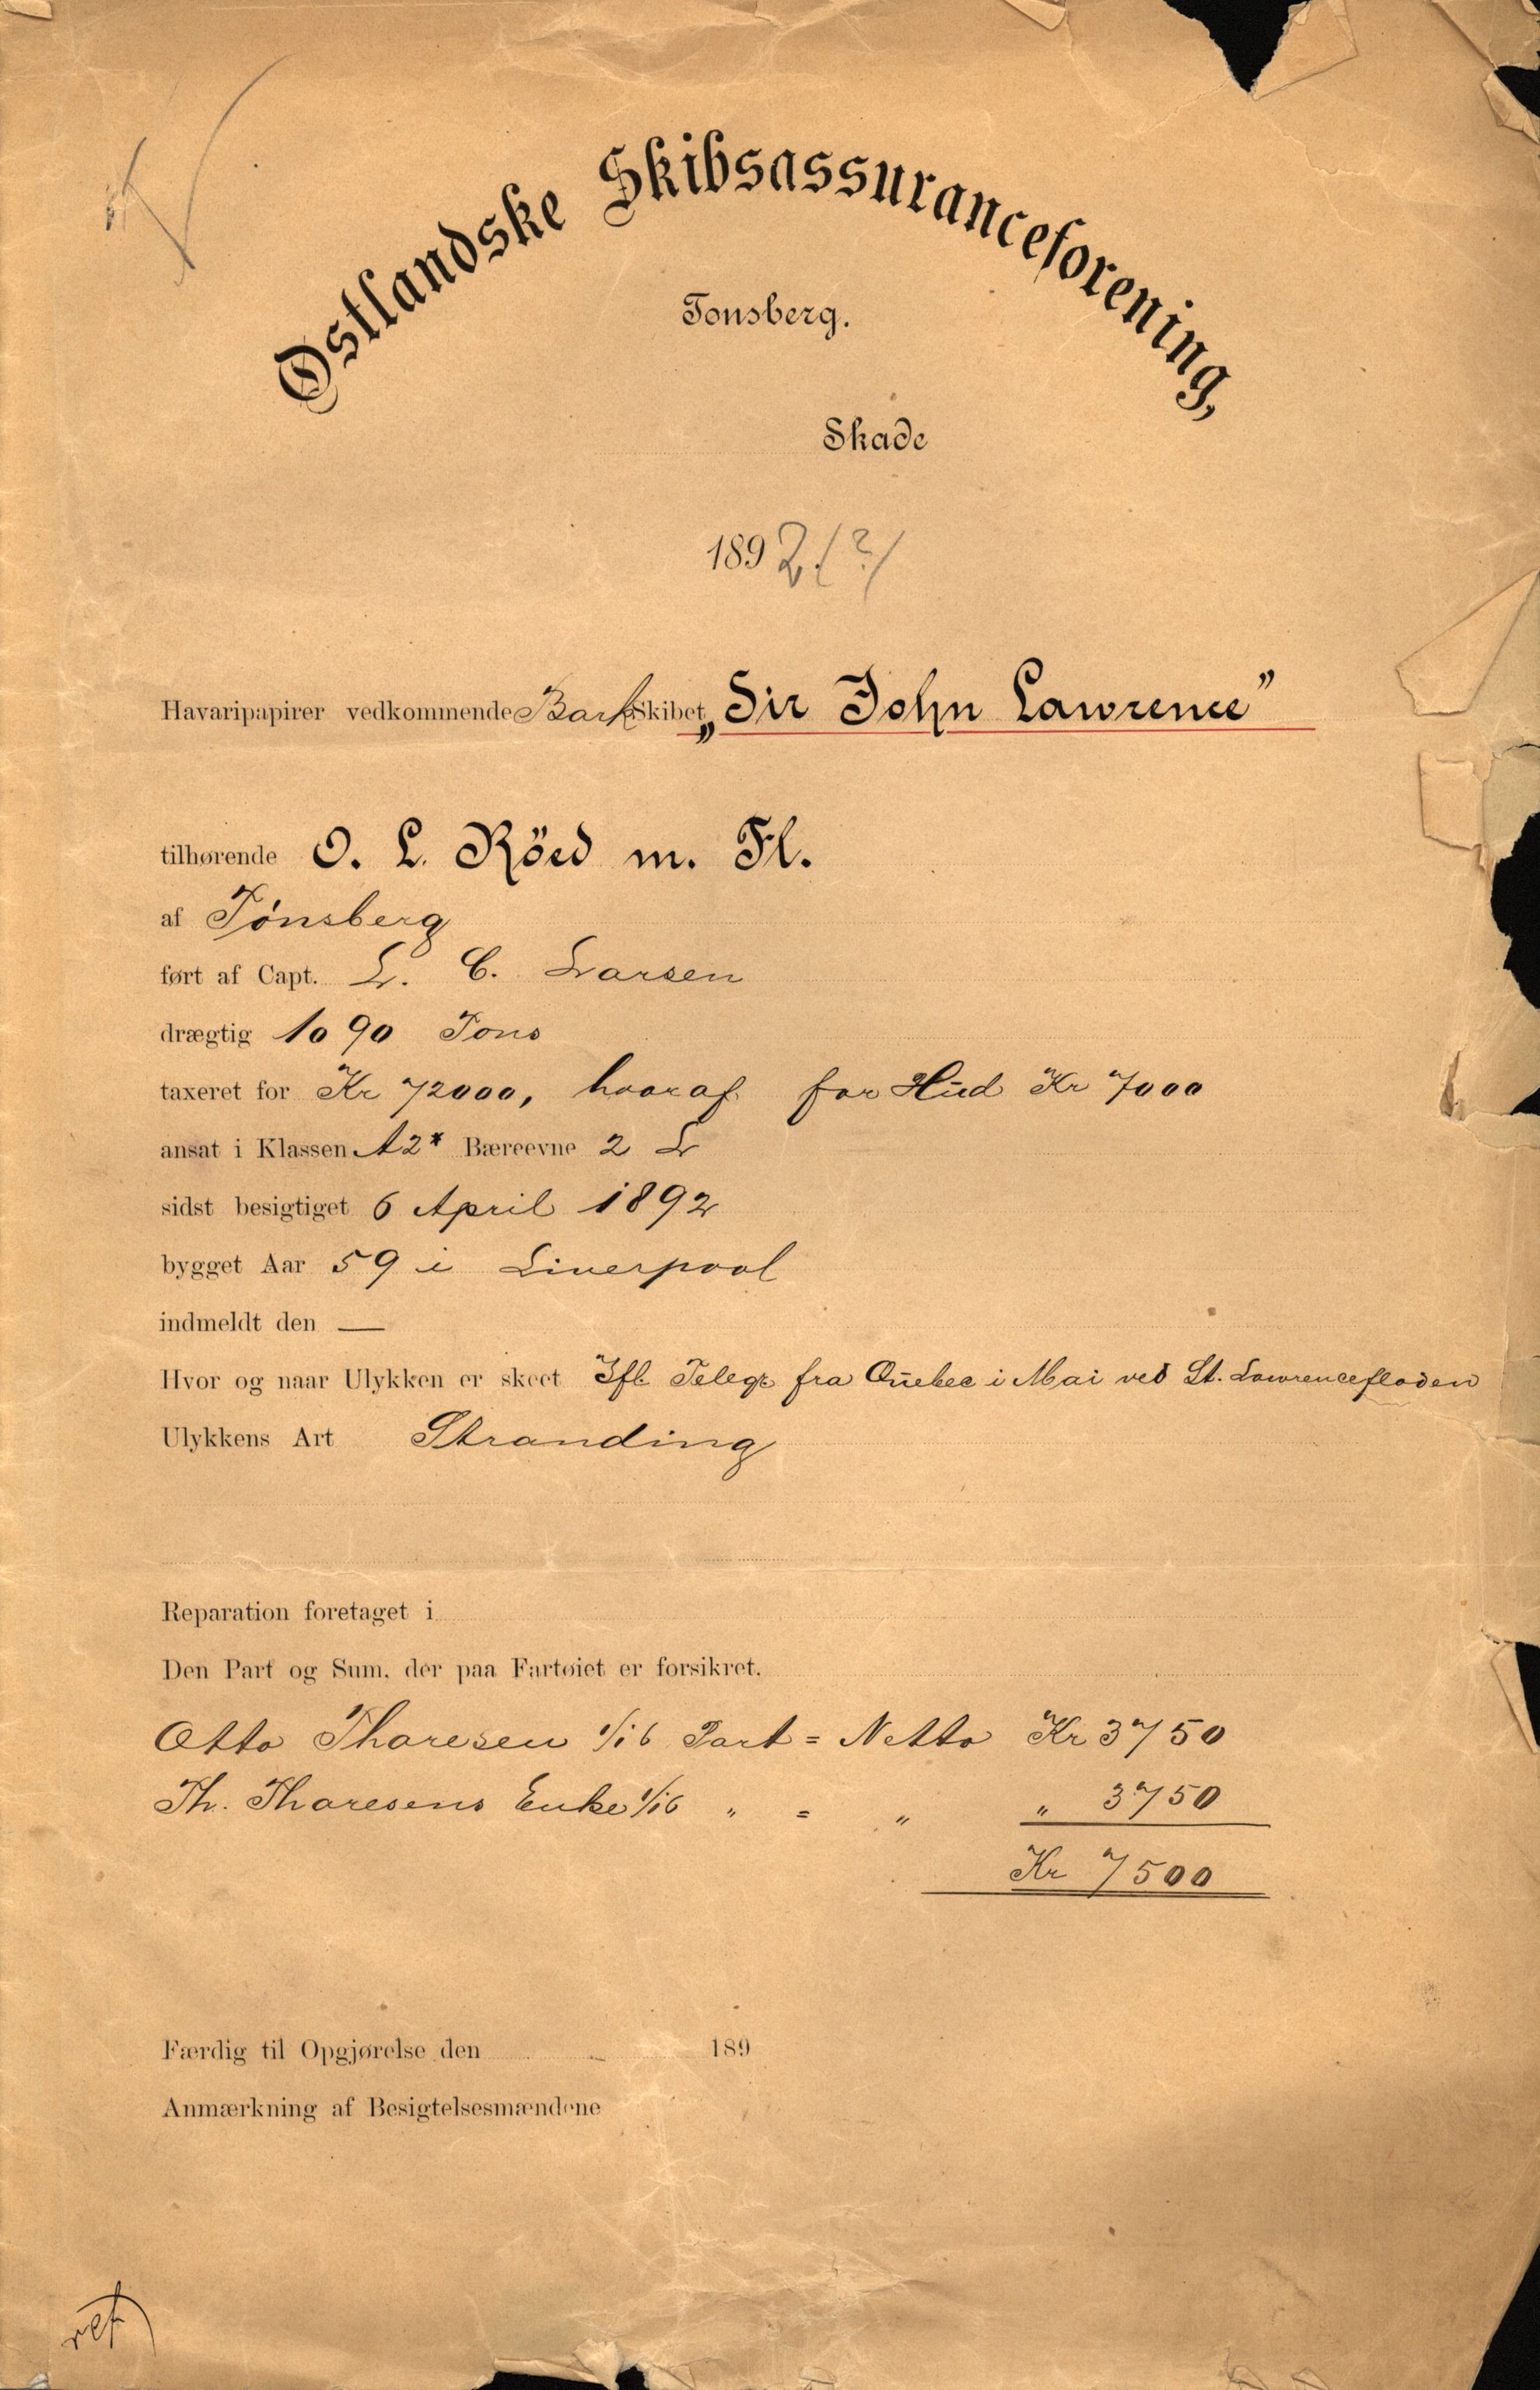 Østlandske Skibsassuranceforening,
Tønsberg.
Skade
1892.(?)
Havaripapirer vedkommende Bark Skibet „Sir John Lawrence”
tilhørende O. L. Röed m. Fl.
af Tønsberg
ført af Capt. L. C. Larsen
drægtig 1090 Tons
taxeret for Kr 72000, hvoraf for Hud Kr 7000
ansat i Klassen A2* Bæreevne 2 L
sidst besigtiget 6 April 1892
bygget Aar 59 i Liverpool
indmeldt den —
Hvor og naar Ulykken er skeet Ifl. Telegr fra Quebec i Mai ved St. Lawrencefloden
Ulykkens Art Stranding
Reparation foretaget i
Den Part og Sum, der paa Fartøiet er forsikret.
Otto Thoresen 1/16 Part = Netto Kr 3750
Th. Thoresens Enke 1/16 " = " " 3750
Kr 7500
Færdig til Opgjørelse den 189
Anmærkning af Besigtelsesmændene